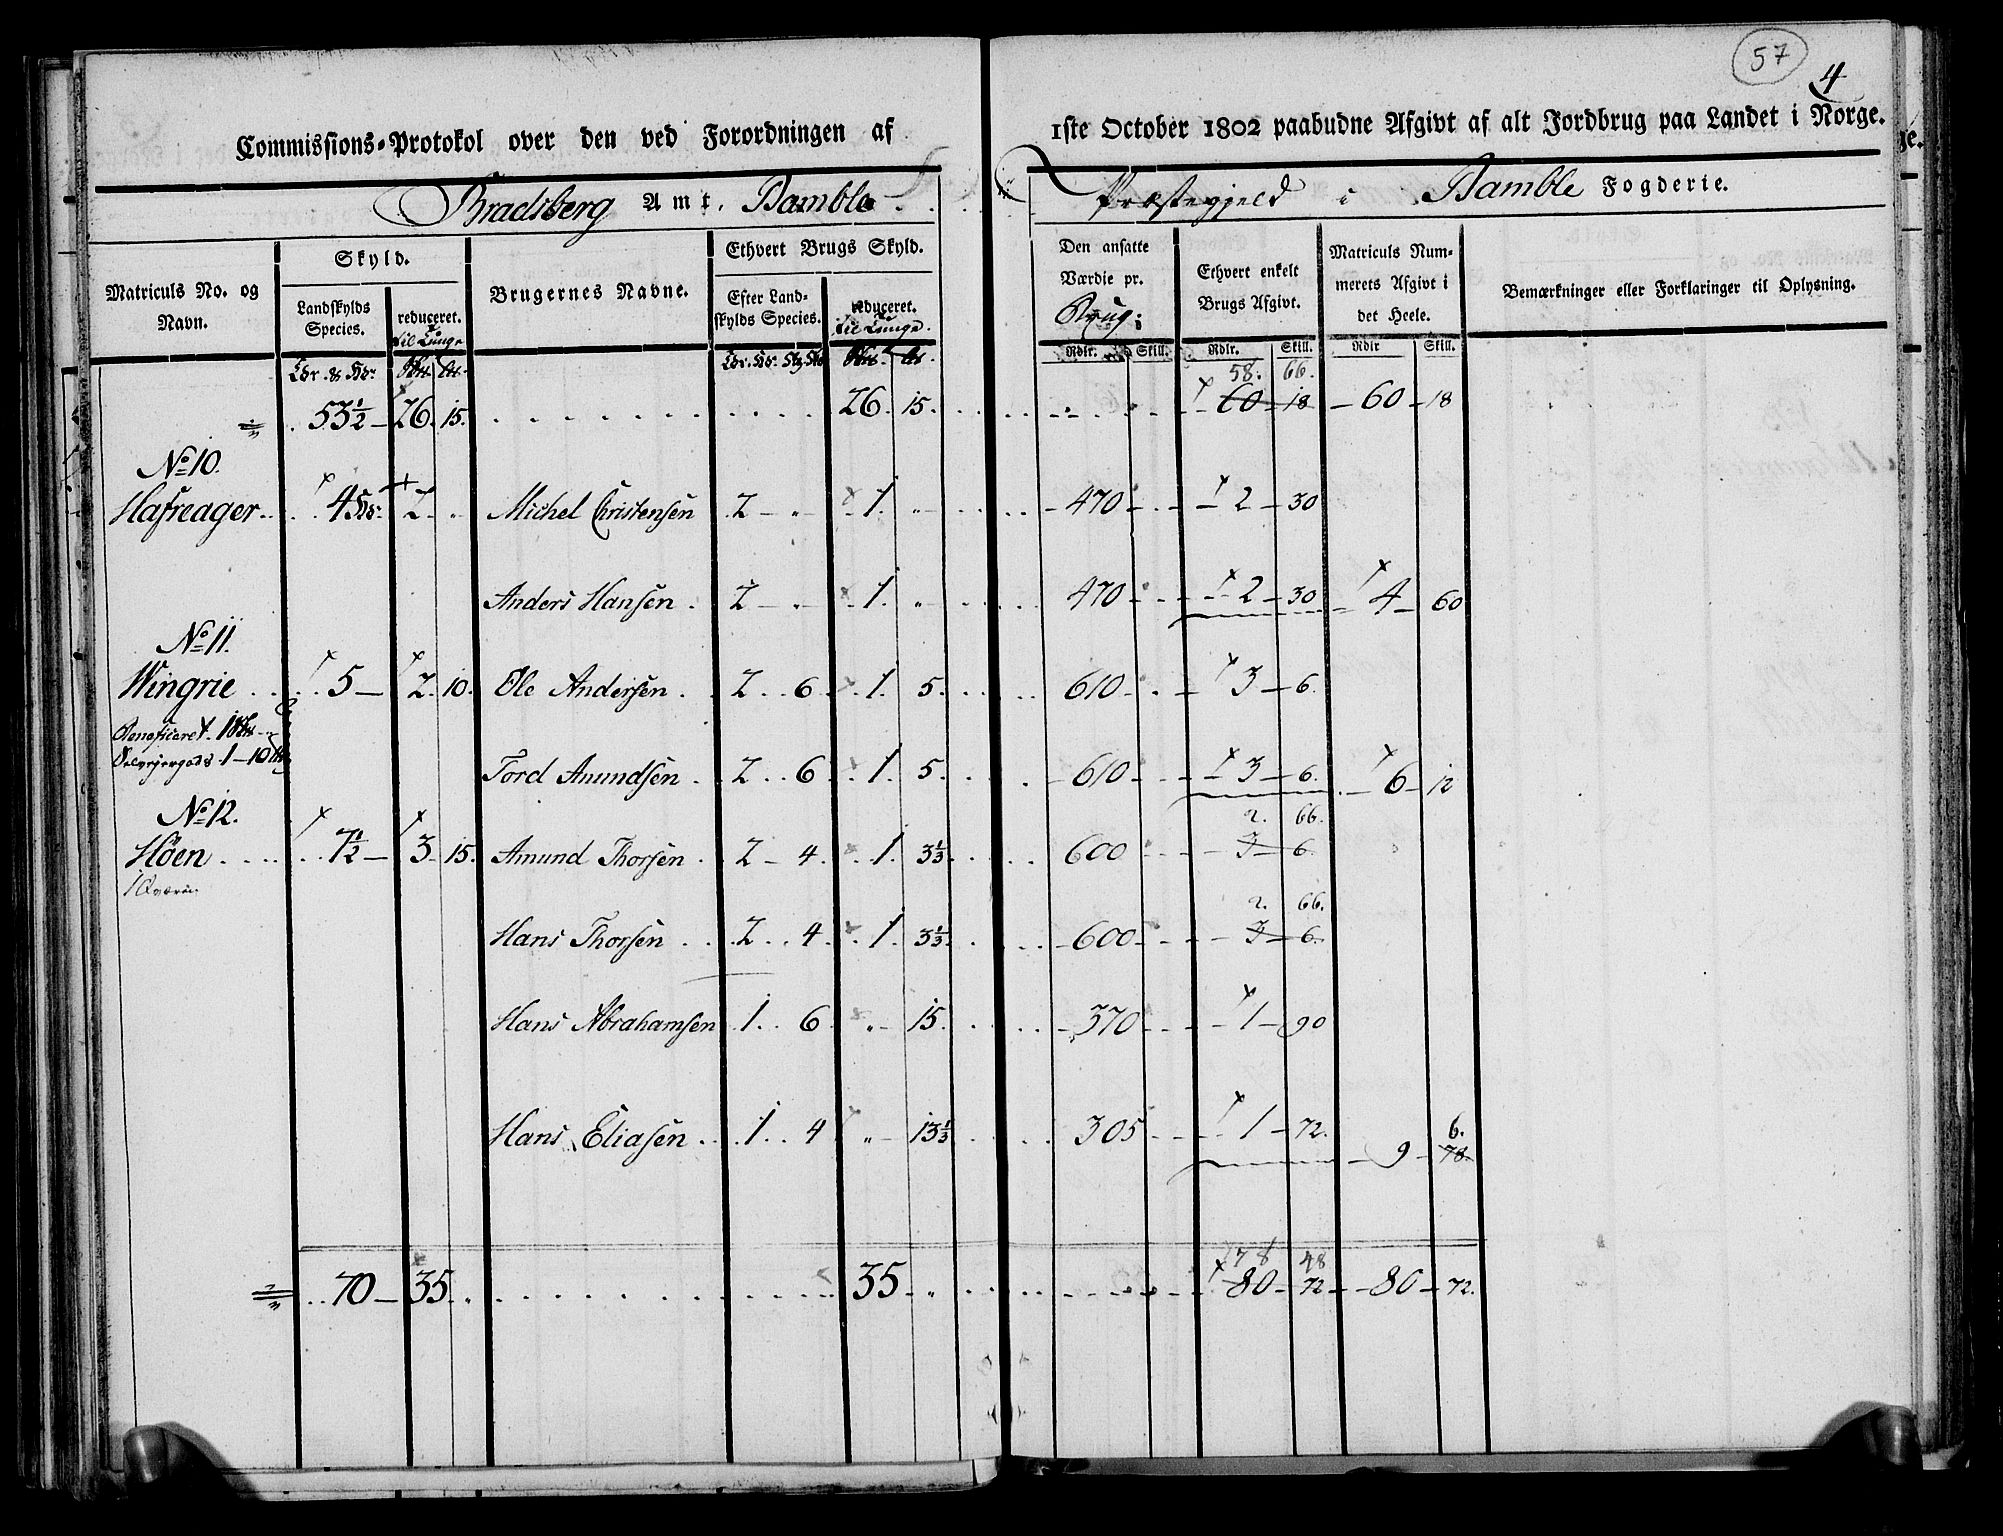 57
4
Commissions-Protokol over den ved Forordningen af 1ste October 1802 paabudne Afgivt af alt Jordbrug paa Landet i Norge.
Bradsberg Amt, Bamble Præstegjeld i Bamble Fogderie.
Matriculs No. og Navn.
Skyld.
Landskylds Species.
reduceret. til Tunge
Brugernes Navne.
Ethvert Brugs Skyld.
Efter Landskylds Species.
reduceret. til Tunge.
Den ansatte Værdie pr. Brug.
Ethvert enkelt Brugs Afgivt.
Matriculs Nummerets Afgivt i det Heele.
Bemærkninger eller Forklaringer til Oplysning.
Rdlr. Skill. Rdlr. Skill. Rdlr Skill.
58. 66.
53½ 26. 15. 26. 15. 60 18 60 18
No 10.
Hafreager 4 2 Michel Christensen 2 1. 470 2 30
Anders Hansen 2 1. 470 2 30 4 60
No 11.
Wingrie 5 2. 10. Ole Andersen 2 6 1. 5. 610 3 6.
Beneficeret 1
Selvejergods 1-10
Tord Amundsen 2 6 1 5. 610 3 6. 6 12
No 12.
2. 66.
Höen 7½ 3 15. Amund Thorsen 2 4. 1. 3⅓ 600 3 6.
1 Qværn
2. 66.
Hans Thorsen 2 4. 1. 3⅓ 600 3 6.
Hans Abrahamsen 1 6 15. 370 1 90
Hans Eliasen 1 4 13⅓ 305 1 72.
6.
9 78.
78 48
70 35 35 80 72 80 72.